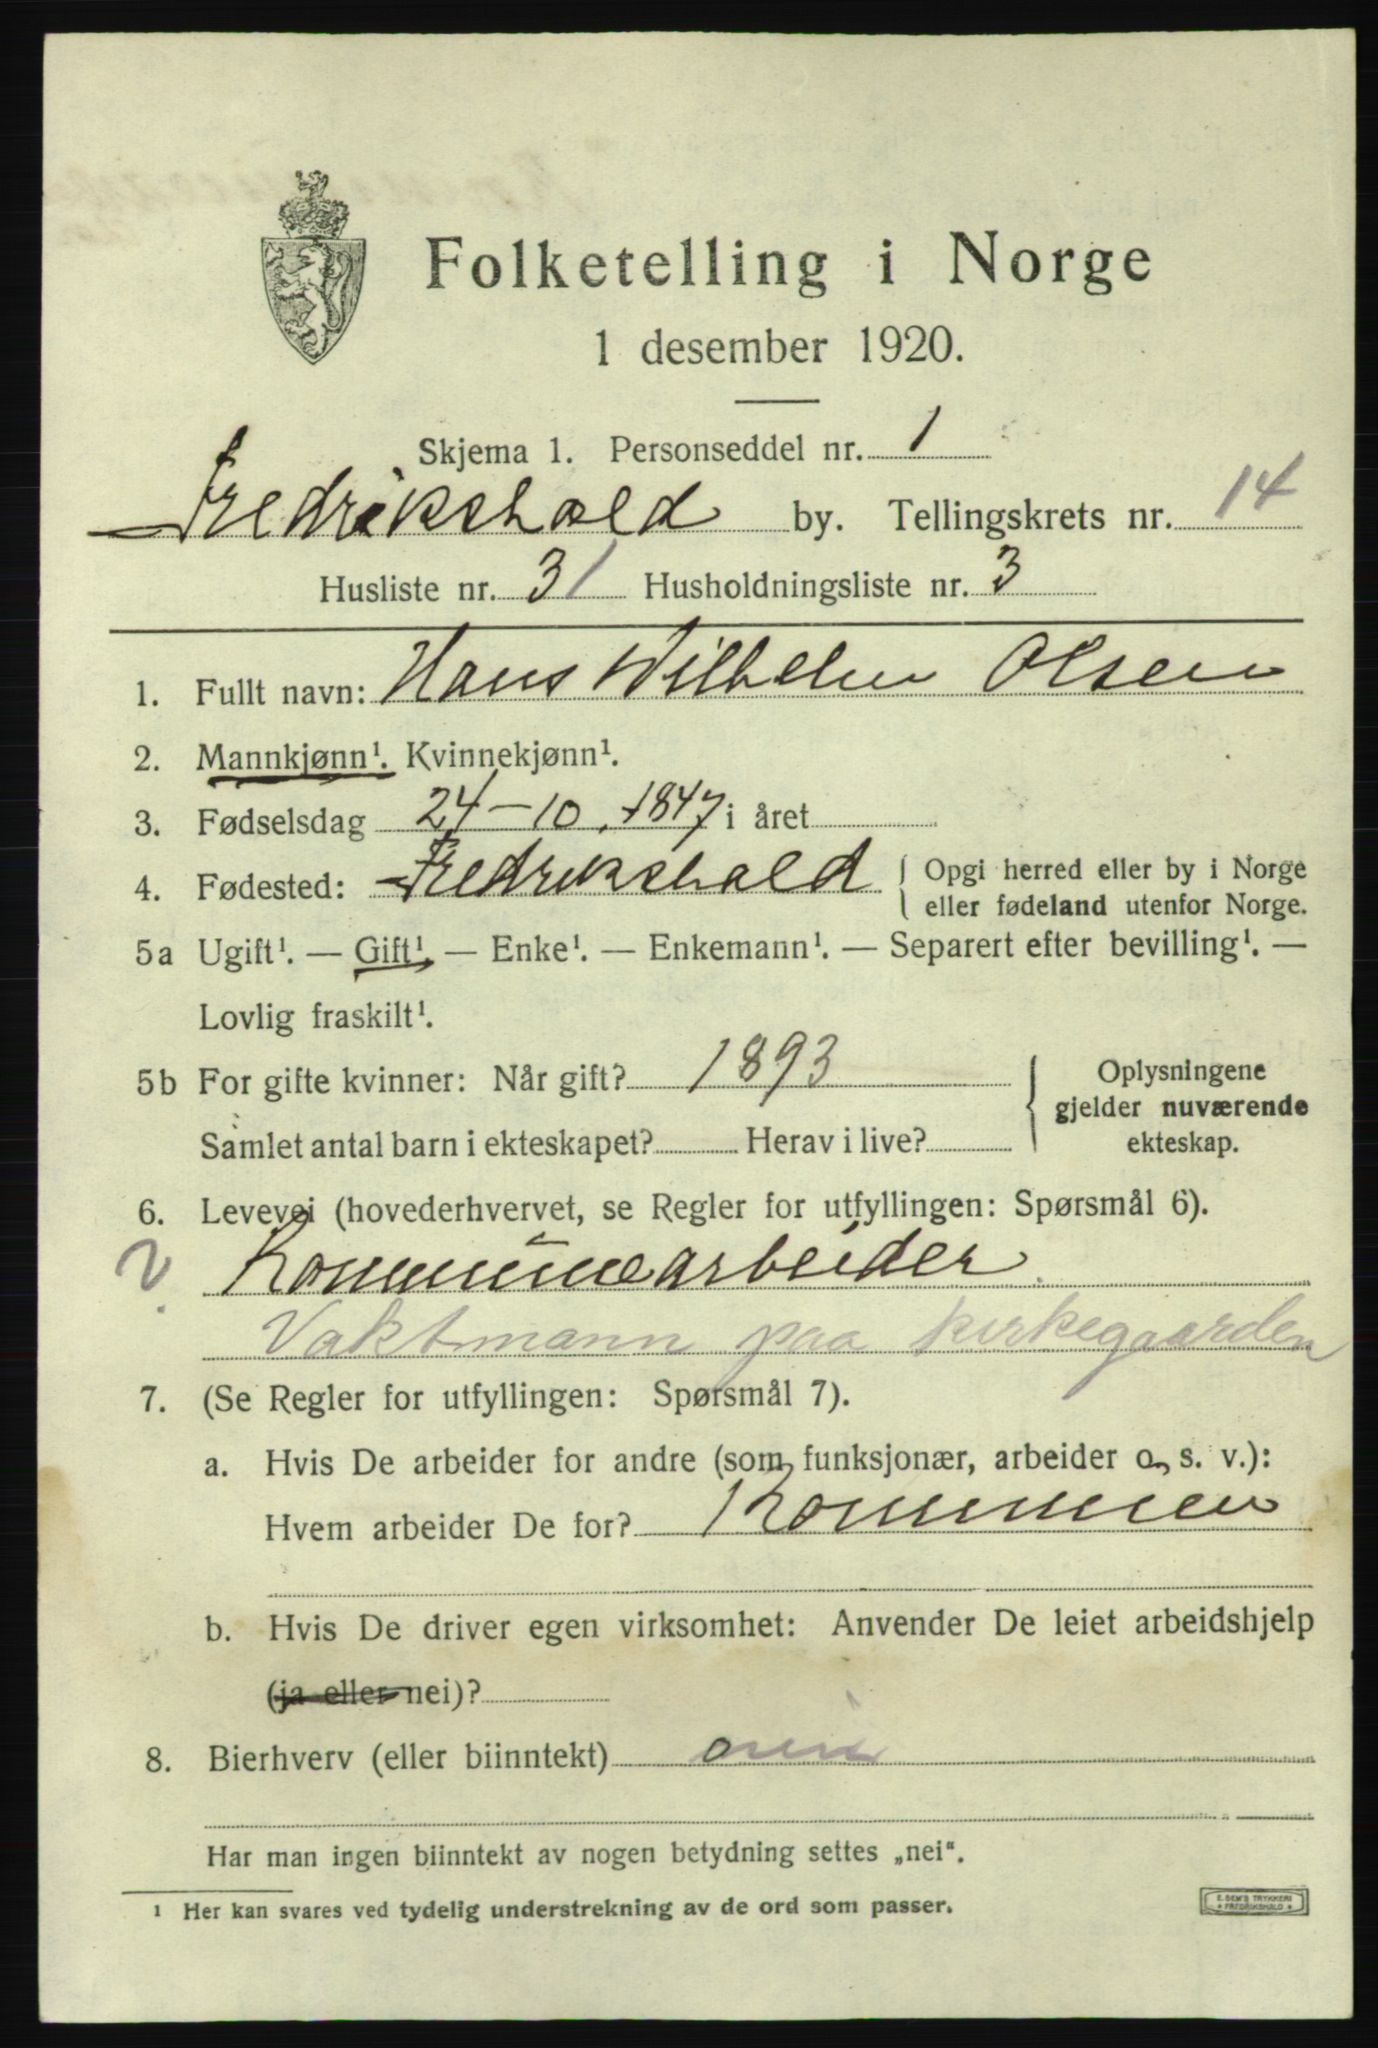 Folketelling i Norge
1 desember 1920.
Skjema 1. Personseddel nr. 1
Fredrikshald by. Tellingskrets nr. 14
Husliste nr. 31 Husholdningsliste nr. 3
1. Fullt navn: Hans Wilhelm Olsen
2. Mannkjønn¹. Kvinnekjønn¹.
3. Fødselsdag 24-10, 1847 i året
4. Fødested: Fredrikshald { Opgi herred eller by i Norge
eller fødeland utenfor Norge.
5a Ugift¹. — Gift¹. — Enke¹. — Enkemann¹. — Separert efter bevilling¹. —
Lovlig fraskilt¹.
5b For gifte kvinner: Når gift? 1893
Samlet antal barn i ekteskapet? Herav i live?
Oplysningene
gjelder nuværende
ekteskap.
6. Levevei (hovederhvervet, se Regler for utfyllingen: Spørsmål 6).
Kommunearbeider
Vaktmann paa kirkegaarden
7. (Se Regler for utfyllingen: Spørsmål 7).
a. Hvis De arbeider for andre (som funksjonær, arbeider o. s. v.):
Hvem arbeider De for? Kommunen
b. Hvis De driver egen virksomhet: Anvender De leiet arbeidshjelp
(ja eller nei)?
8. Bierhverv (eller biinntekt)
Har man ingen biinntekt av nogen betydning settes „nei“.
¹ Her kan svares ved tydelig understrekning av de ord som passer.
E. SEM'S TRYKKERI
* FREDRIKSHALD *